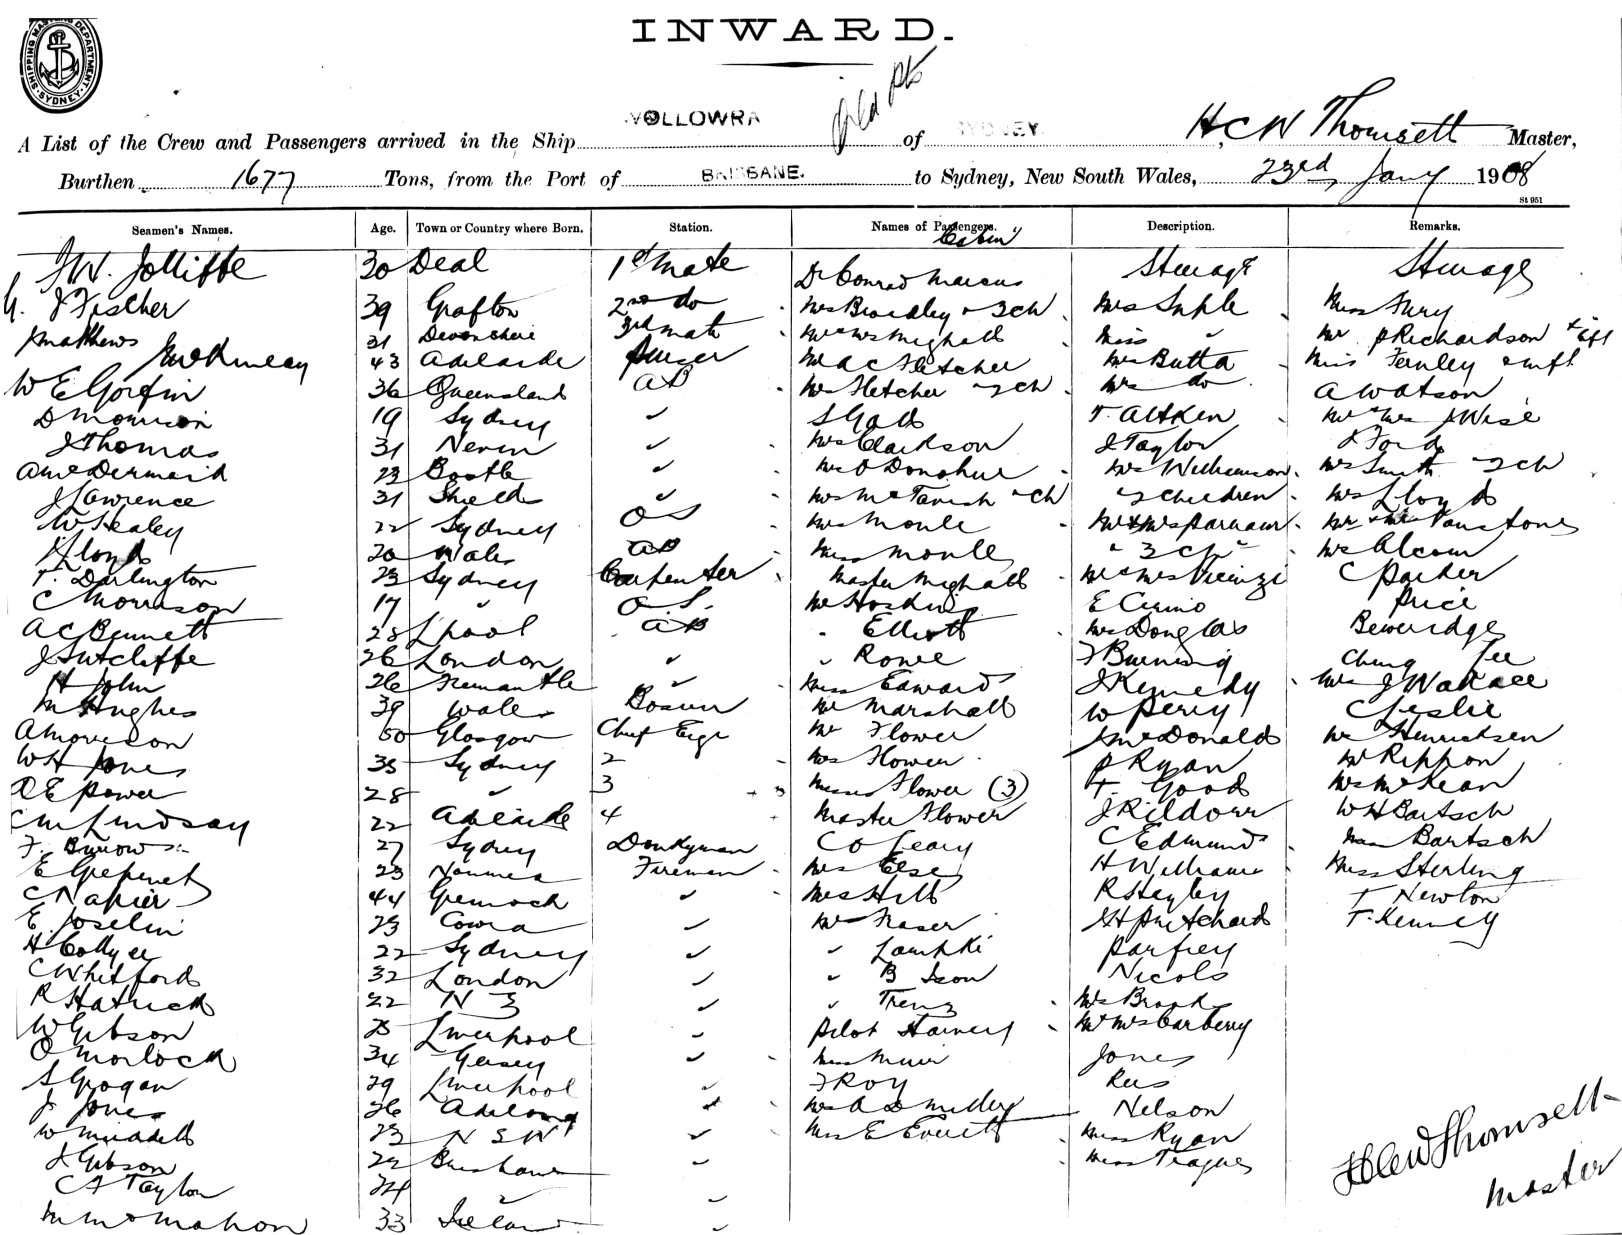 INWARD.
SHIPPING MASTERS DEPARTMENT. SYDNEY
A List of the Crew and Passengers arrived in the Ship WOLLOWRA of SYDNEY H.C.W Thomsett Master,
Burthen 1677 Tons, from the Port of BRISBANE. to Sydney, New South Wales, 23rd Jany 1908
St 951
Seamen's Names. Age. Town or Country where Born. Station. Names of Passengers. Description. Remarks.
Cabin
J W. Jolliffe 30 Deal 1st Mate Dr Conrad Marcus Steerage Steerage
J Fischer 39 Grafton 2nd do Mrs Bradley + 2 ch Mrs Suple Miss Fury
Matthews 31 Devonshire 3rd mate Mr & Mrs Mighall Miss " Mr P Richardson
McKinlay 43 Adelaide Purser A C Fletcher Mrs Butta Miss Fernley
W E Gorfin 36 Queensland AB Mrs Fletcher 2 ch Mrs do A Watson
D Morrison 19 Sydney ✓ S Gall T. Aitken Mr & Mrs J Wise
J Thomas 31 Nevin ✓ Mrs Clarkson J Taylor J Ford
A McDermaid 23 Bootle ✓ Mrs O Donohue Mrs Williamson Mrs Smith 2 ch
J Lawrence 31 Shields ✓ Mrs McTavish & ch 2 children Mrs Lloyd
W Healey 22 Sydney OS Mrs Monle Mr & Mrs Parnaur Mr & Mrs
H Lloyd 20 Wales AB Miss Monle " 3 ch " Mrs Alcorn
T. Darlington 23 Sydney Carpenter Master Mighall Mr & Mrs C Parker
C Morrison 17 " O.S. Mr Hoskin E Cirino Price
A C Bennett 28 L'pool AB " Elliott Mrs Douglas Beweridge
J Sutcliffe 26 London ✓ " Rowe F Burning Ching Lee
H John 26 Fremantle ✓ Miss Edwards J Kennedy Mrs J Wallace
M Hughes 39 Wales Bosun Mr Marshall W Percy C Leslie
A Morrison 60 Glasgow Chief Engr Mr Flower J McDonald Mr Hinrichsen
W H Jones 35 Sydney 2 Mrs Flower P Ryan Mr Rippon
R E Power 28 " 3 Misses Flower (3) T. Good Mrs McLean
C M Lindsay 22 Adelaide 4 Master Flower J Kildorr W H Bartsch
F. Byrow 27 Sydney Donkyman C O Leary C Edmunds Bartsch
E 23 Noumea Firemen Mrs Else H Williams Miss Sterling
C Napier 44 Greenock ✓ Mrs Hill R Hegley T Newton
E. Joselin 23 Cowra ✓ Mr Fraser J H Pritchard T. Kenney
H Collyer 22 Sydney ✓ " Lampki Parfrey
C Whitford 32 London ✓ " B Ison Nicols
R Hatrick 22 N Z ✓ " Trenz Mrs Brook
W Gibson 25 Liverpool ✓ Pilot Harvey Mr Mrs Carberry
O Morlock 34 Gersey ✓ Miss Muir Jones
S Grogan 29 Liverpool ✓ F Roy Rees
J Jones 26 Adelaide ✓ Mrs A D Miller Nelson
W 23 N S W ✓ Mrs E Everett Miss Ryan
J Gibson 22 Brisbane ✓ Miss Teagues
C A Taylor 24 " ✓
M McMahon 33 Ireland ✓
H C W Thomsett
Master